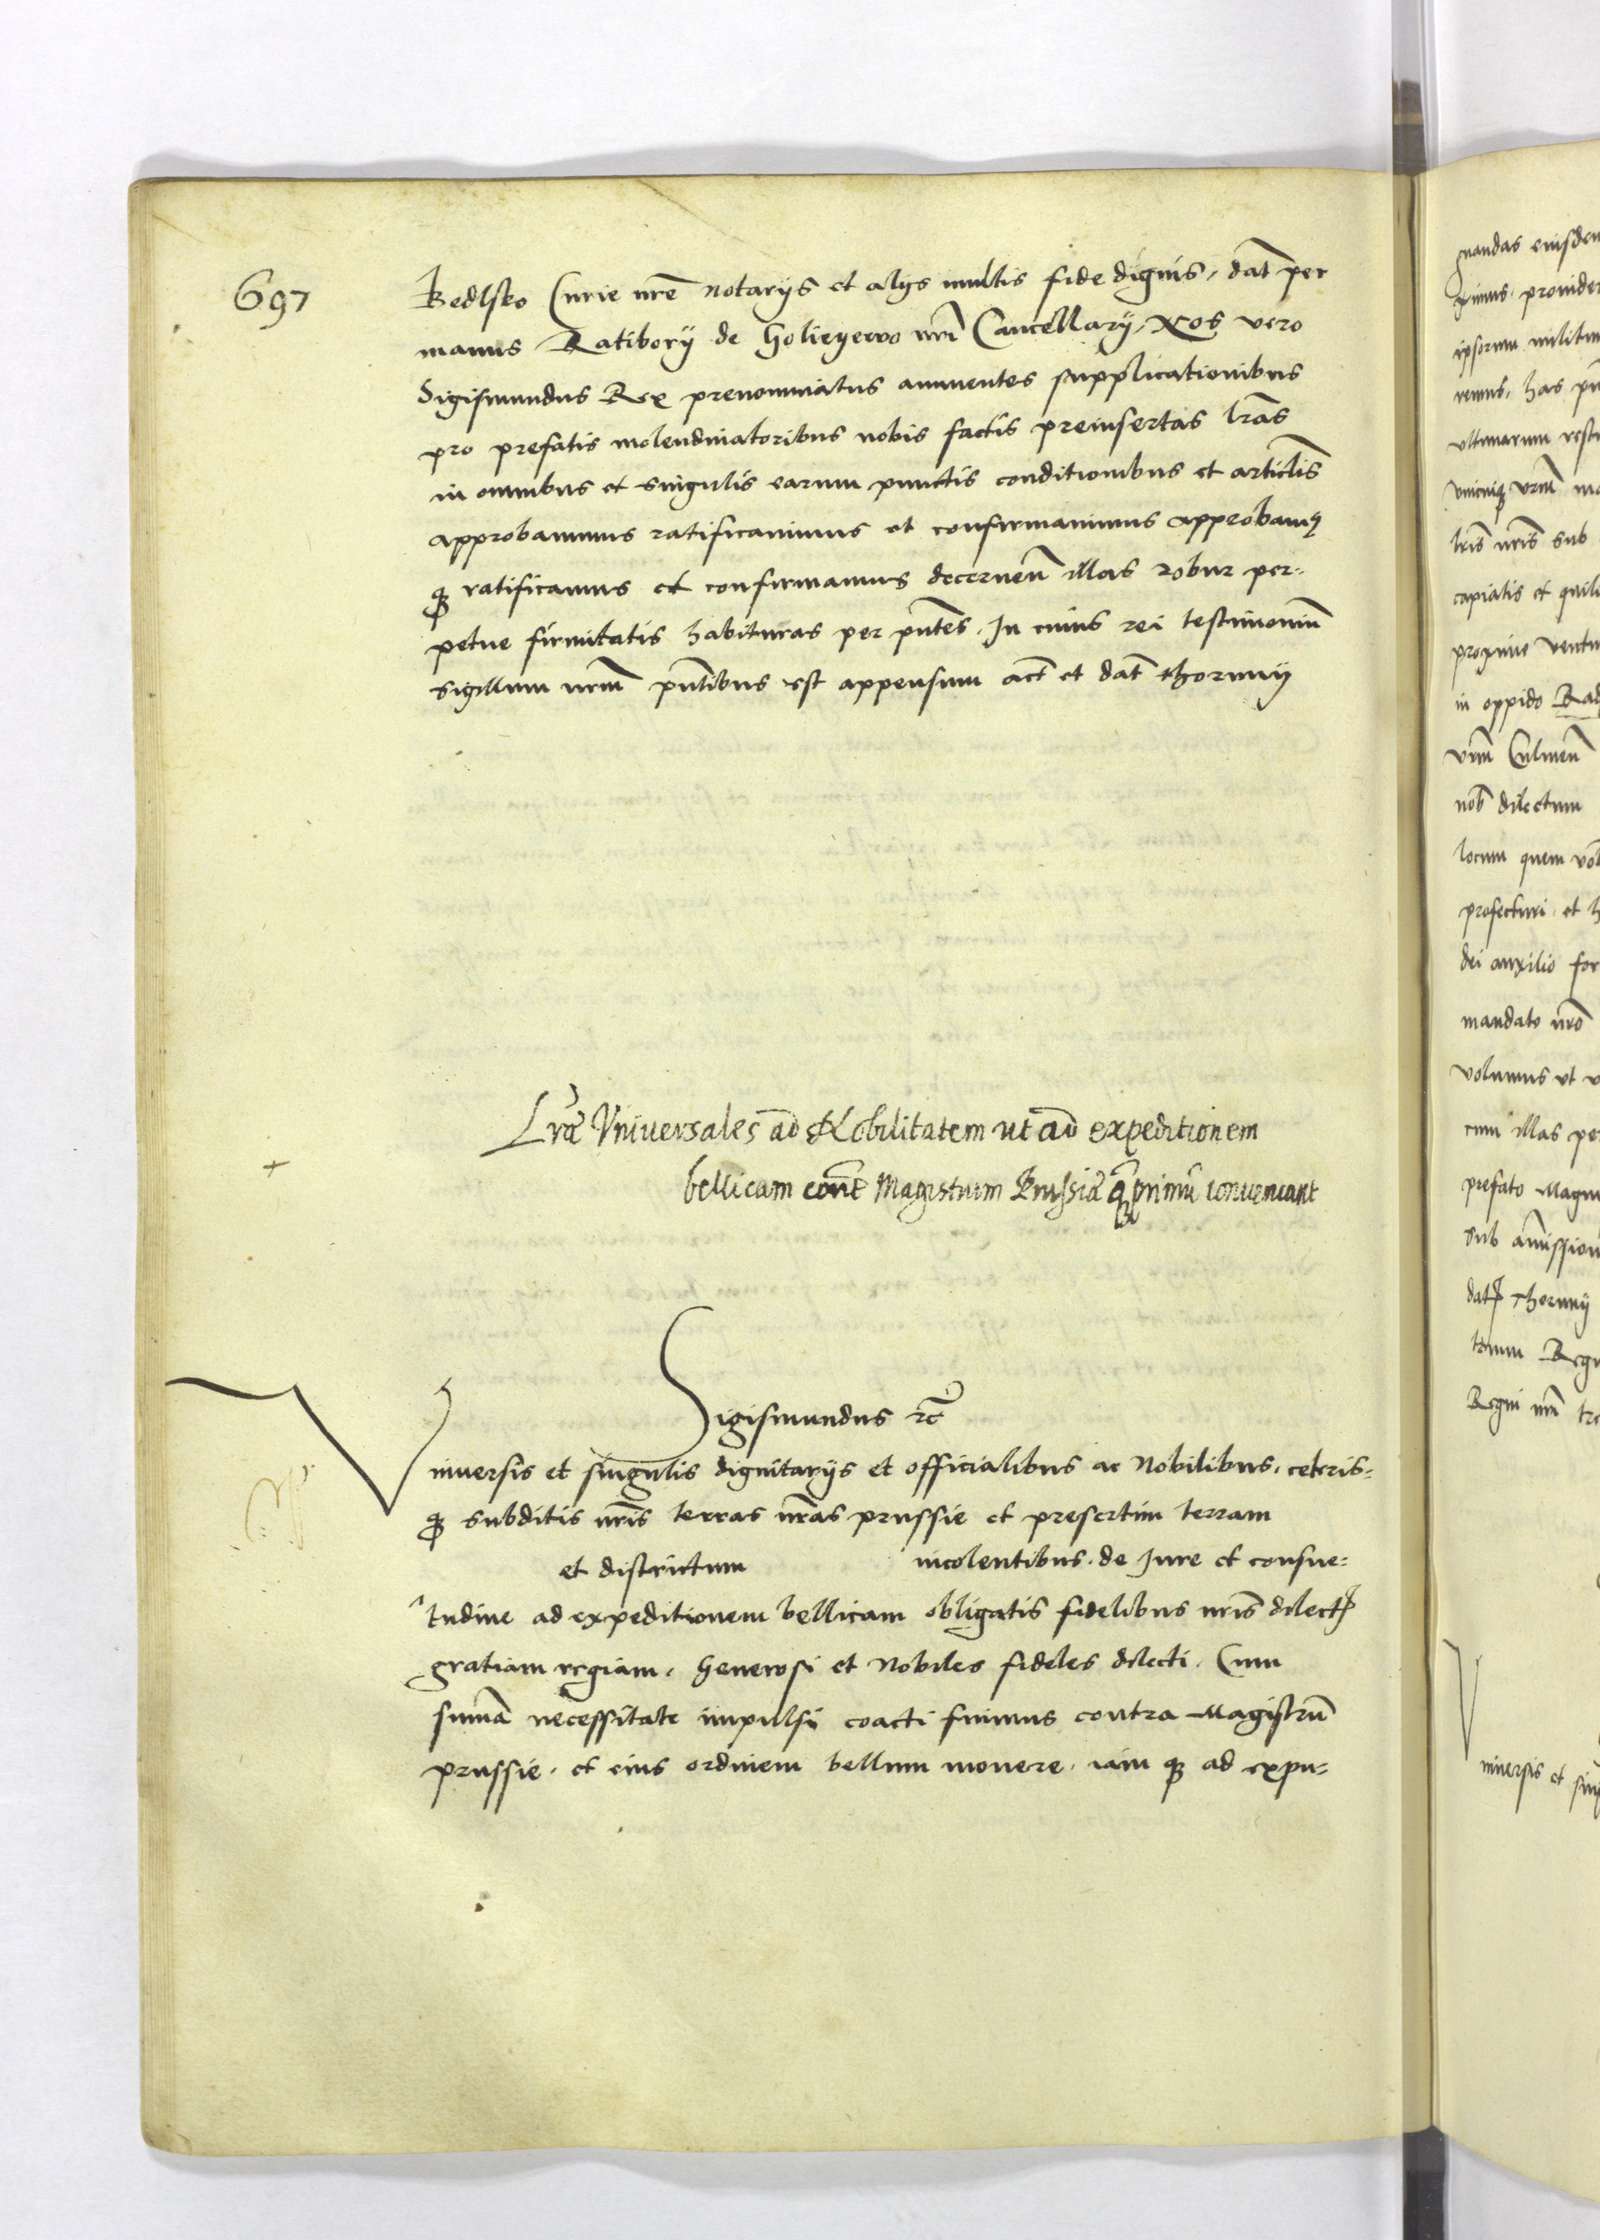 697
Bedlsko Curie nr̄e notarijs et alijs multis fide dignis, dat̄ per
manus Ratiborij de Golieyewo nr̄i Cancellarij, Nos vero
Sigismundus Rex prenominatus annuentes supplicationibus
pro prefatis molendinatoribus nobis factis preinsertas lr̄as
in omnibus et singulis earum punctis conditionibus et articlis̄
approbavimus ratificavimus et confirmavimus approbamꝰ
qꝫ ratificamus et confirmamus decernen̄ illas robur per-
petue firmitatis habituras per pn̄tes. In cuius rei testimoniū
sigillum nrm̄ pn̄tibus est appensum act̄ et dat̄ Thorunij
Lr̄æ Vniuersales ad Nobilitatem ut ad expeditionem
bellicam cont̄ Magistrum Prussiæ qꝫprimū conueniant
Sigismundus etc̄
Vniuersis et singulis dignitarijs et officialibus ac Nobilibus, ceteris-
qꝫ subditis nr̄is terras nr̄as prussie et presertim terram
et districtum incolentibus, de Iure et consue-
tudine ad expeditionem bellicam obligatis fidelibus nr̄is dilectꝭ
gratiam regiam. Generosi et Nobiles fideles dilecti. Cum
sum̄a necessitate impulsi coacti fuimus contra Magistrū
prussie, et eius ordinem bellum mouere, iam qꝫ ad expu-
gnandas eiusdem
ximus, prouider
ipsorum militum
remus, has
ultimarum
vnicuiqꝫ vrm̄
lr̄is nr̄is sub
capiatis et
proxime
in oppido
vrm̄ Culmen̄
nob̄ dilectum
locum quem
profecturi, et
dei auxilio
mandato nr̄o
volumus ut
cum illas
prefato
sub amission
datꝭ Thorunij
Regni nr̄i
niuersis et